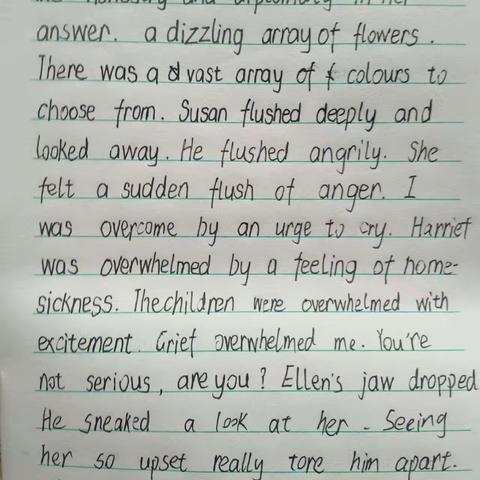 answer. a dizzling array of flowers.
There was a vast array of colours to
choose from. Susan flushed deeply and
looked away. He flushed angrily. She
felt a sudden flush of anger. I
was overcome by an urge to cry. Harriet
was overwhelmed by a feeling of home-
sickness. The children were overwhelmed with
excitement. Grief overwhelmed me. You're
not serious, are you? Ellen's jaw dropped
He sneaked a look at her. Seeing
her so upset really tore him apart.